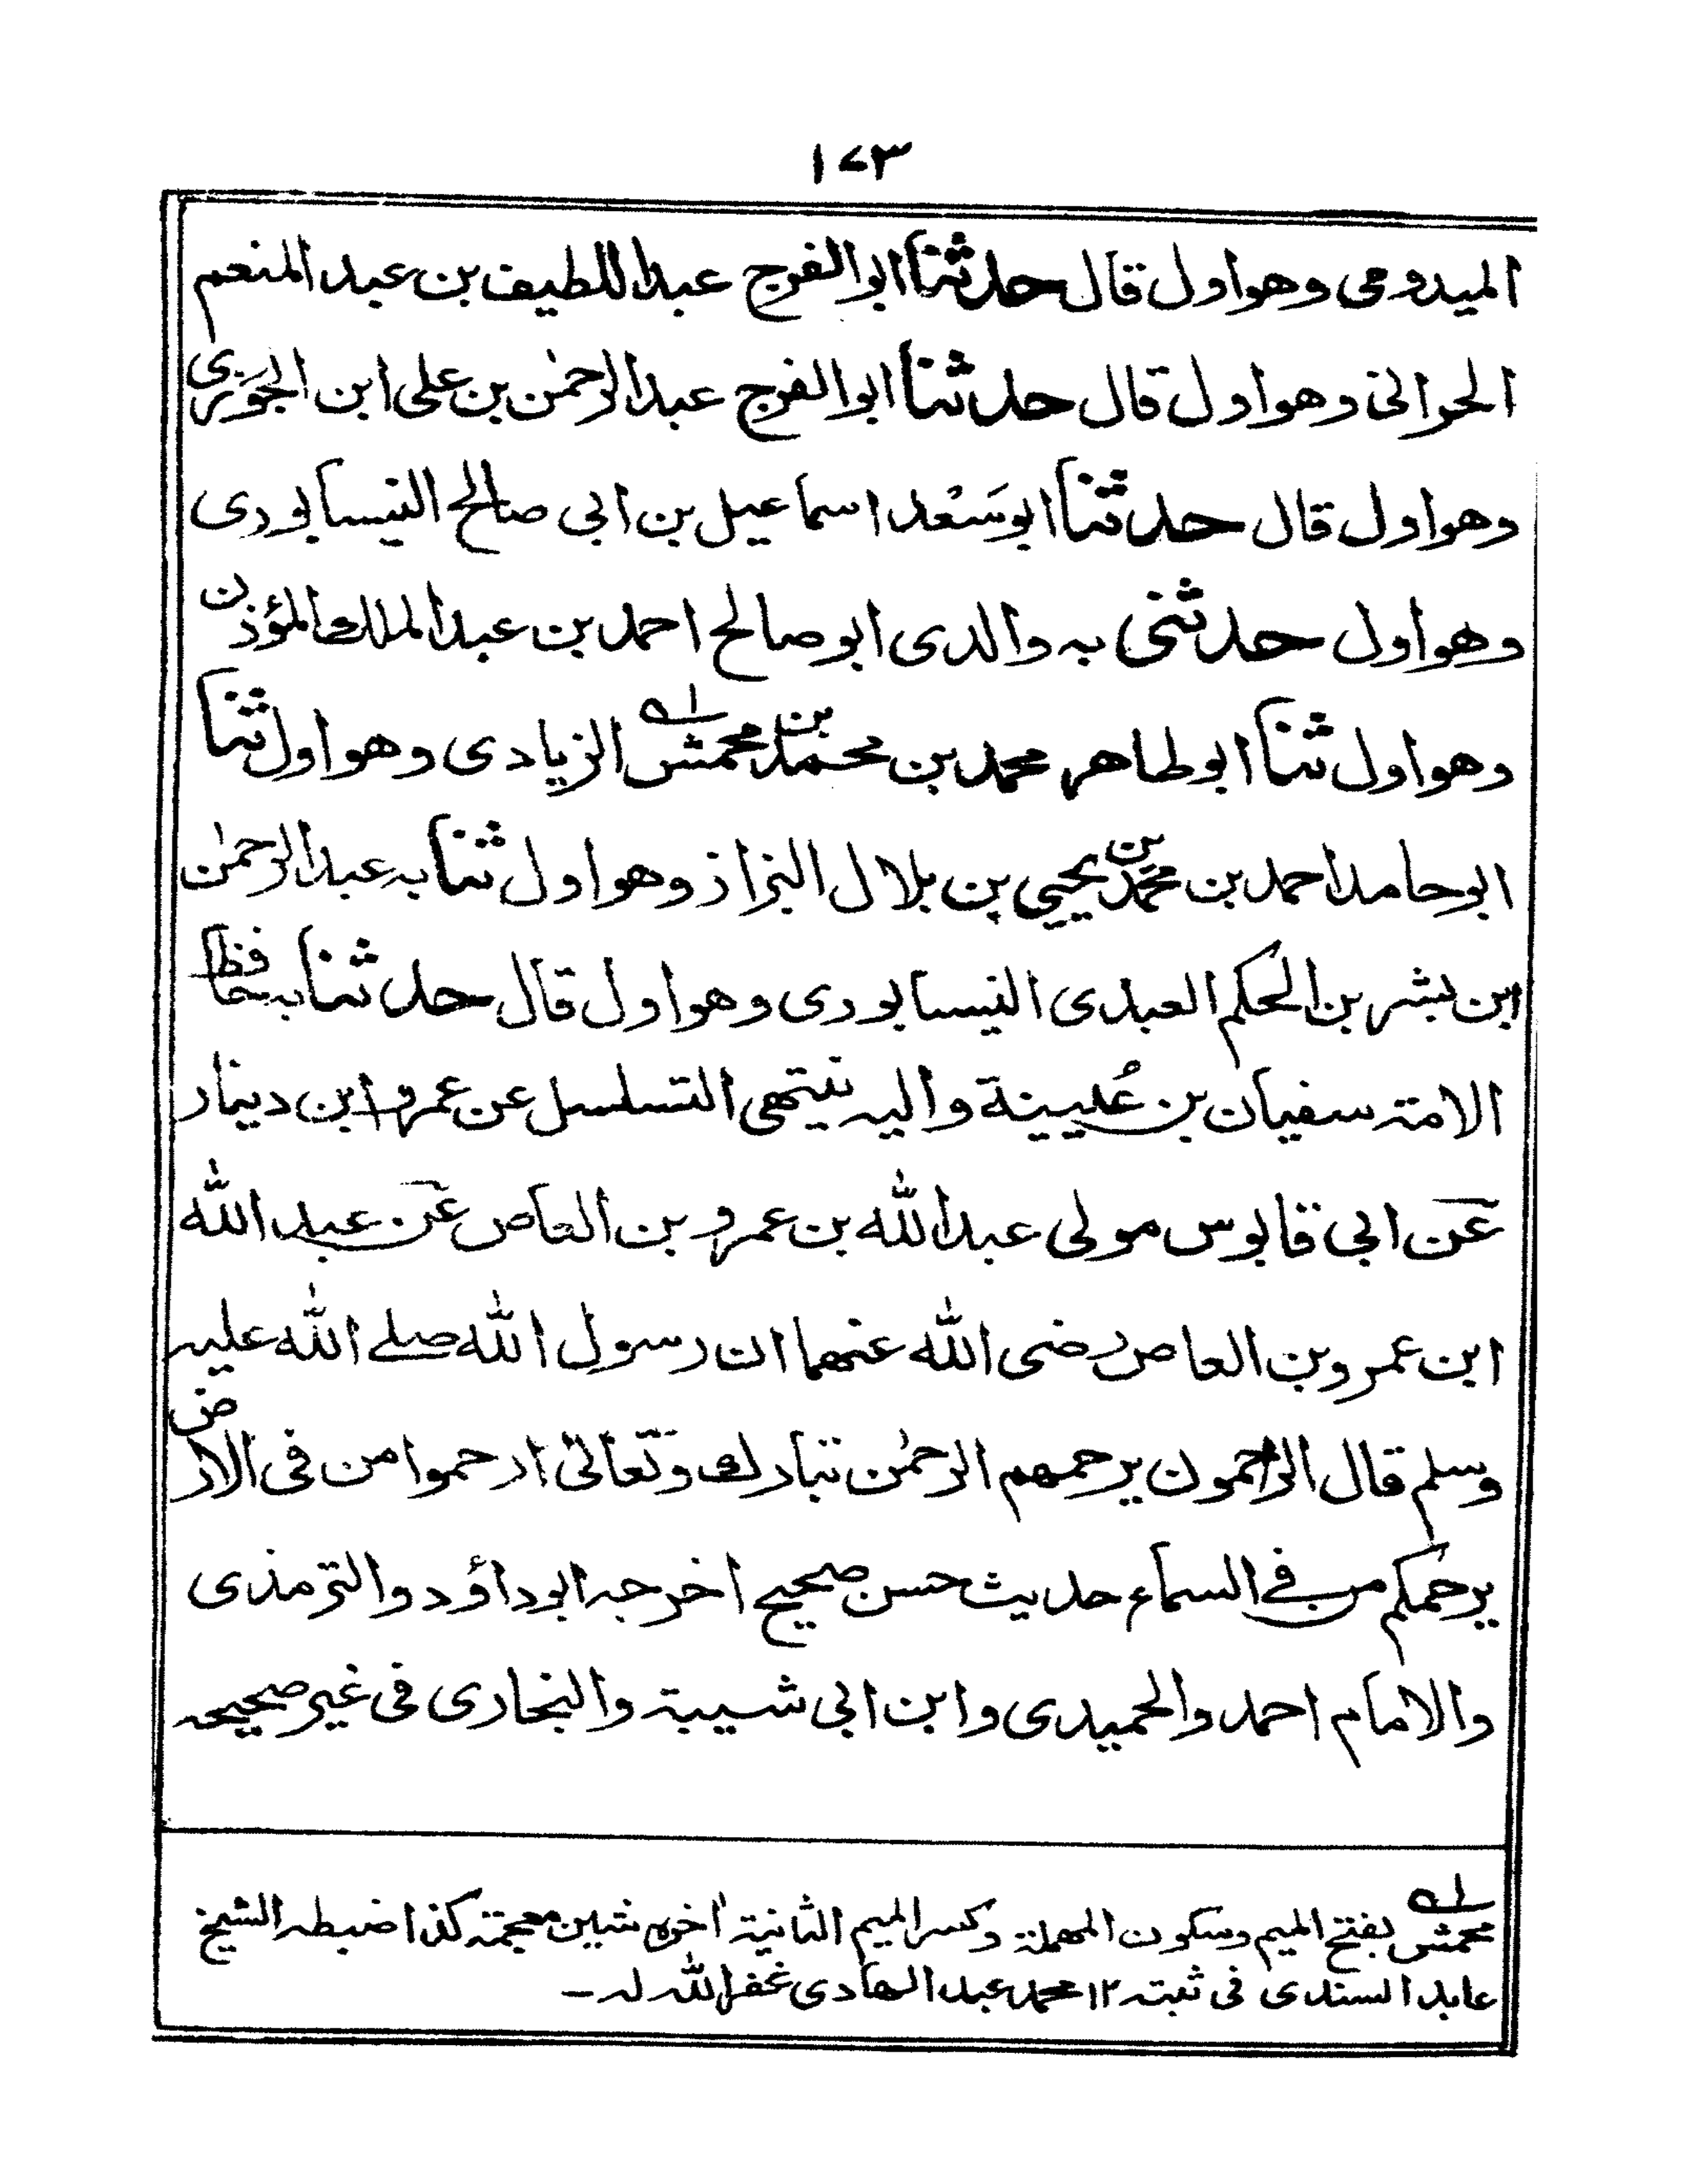 ۱۷۳
الميدومى وهو اول قال حدثنا ابو الفرج عبد اللطيف بن عبد المنعم
الحرانى وهو اول قال حدثنا ابو الفرج عبد الرحمٰن بن على ابن الجوزى
وهو اول قال حدثنا ابو سَعْد اسماعيل بن ابى صالح النيسابورى
وهو اول حدثنى به والدى ابو صالح احمد بن عبد الملك المؤذن
وهو اول ثنا ابو طاهر محمد بن محمد بن محمش ؎۱ الزيادى وهو اول ثنا
ابو حامد احمد بن محمد بن يحيى بن بلال البزاز وهو اول ثنا به عبد الرحمٰن
ابن بشر بن الحكم العبدى النيسابورى وهو اول قال حدثنا به حافظ
الامة سفيان بن عُيينة واليه ينتهى التسلسل عن عمرو ابن دينار
عن ابى قابوس مولى عبد الله بن عمرو بن العاص عن عبد الله
ابن عمرو بن العاص رضى الله عنهما ان رسول الله صلے الله عليه
وسلم قال الراحمون يرحمهم الرحمٰن تبارك وتعالىٰ ارحموا من فى الارض
يرحمكم من فے السماء حديث حسن صحيح اخرجه ابو داؤد والترمذى
والامام احمد والحميدى وابن ابى شيبة والبخارى فى غير صحيحه
؎۱ محمش بفتح الميم وسكون المهملة وكسر الميم الثانية اٰخره شين معجمة كذا ضبطه الشيخ
عابد السندى فى ثبته ۱۲ محمد عبد الهادى غفر الله له ـ